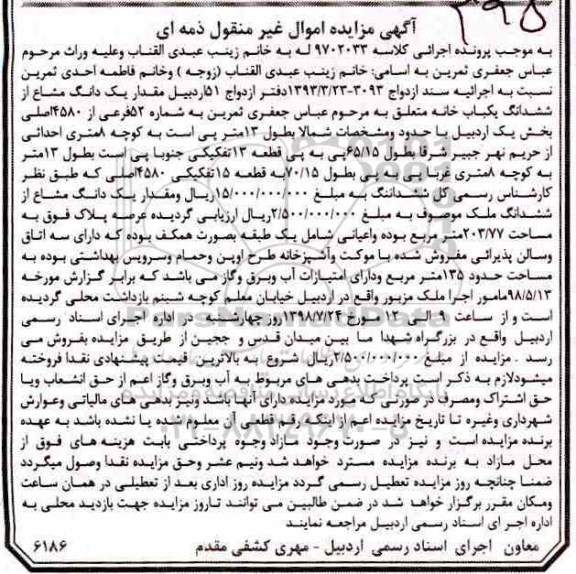 ۳۹۵
آگهی مزایده اموال غیر منقول ذمه ای
به موجب پرونده اجرائی کلاسه ۹۷۰۲۰۳۳ له به خانم زینب عبدی القناب وعلیه وراث مرحوم
عباس جعفری ثمرین به اسامی: خانم زینب عبدی القناب (زوجه ) وخانم فاطمه احدی ثمرین
نسبت به اجرائیه سند ازدواج ۳۰۹۳-۱۳۹۳/۳/۲۳دفتر ازدواج ۵۱اردبیل مقدار یک دانگ مشاع از
ششدانگ یکباب خانه متعلق به مرحوم عباس جعفری ثمرین به شماره ۵۲فرعی از ۴۵۸۰اصلی
بخش یک اردبیل با حدود ومشخصات شمالا بطول ۱۳متر پی است به کوچه ۸متری احداثی
از حریم نهر جبیر شرقا بطول ۶۵/۱۵پی به پی قطعه ۱۳تفکیکی جنوبا پی ست بطول ۱۳متر
به کوچه ۸متری غربا پی به پی بطول ۷۰/۱۵به قطعه ۱۵تفکیکی ۴۵۸۰اصلی که طبق نظر
کارشناس رسمی کل ششدانگ به مبلغ ۱۵/۰۰۰/۰۰۰/۰۰۰ریال ومقدار یک دانگ مشاع از
ششدانگ ملک موصوف به مبلغ ۲/۵۰۰/۰۰۰/۰۰۰ریال ارزیابی گردیده عرصه پلاک فوق به
مساحت ۲۰۳/۷۷متر مربع بوده واعیانی شامل یک طبقه بصورت همکف بوده که دارای سه اتاق
وسالن پذیرائی مفروش شده با موکت وآشپزخانه طرح اوپن وحمام وسرویس بهداشتی بوده به
مساحت حدود ۱۳۵متر مربع ودارای امتیازات آب وبرق وگاز می باشد که برابر گزارش مورخه
۹۸/۵/۱۳مامور اجرا ملک مزبور واقع در اردبیل خیابان معلم کوچه شبنم بازداشت محلی گردیده
است و از ساعت ۹ الی ۱۲ مورخ ۱۳۹۸/۷/۲۴روز چهارشنبه در اداره اجرای اسناد رسمی
اردبیل واقع در بزرگراه شهدا ما بین میدان قدس و ججین از طریق مزایده بفروش می
رسد . مزایده از مبلغ ۲/۵۰۰/۰۰۰/۰۰۰ریال شروع به بالاترین قیمت پیشنهادی نقدا فروخته
میشودلازم به ذکر است پرداخت بدهی های مربوط به آب وبرق وگاز اعم از حق انشعاب ویا
حق اشتراک ومصرف در صورتی که مورد مزایده دارای آنها باشد و نیز بدهی های مالیاتی وعوارش
شهرداری وغیره تا تاریخ مزایده اعم از اینکه رقم قطعی آن معلوم شده یا نشده باشد به عهده
برنده مزایده است و نیز در صورت وجود مازاد وجوه پرداختی بابت هزینه های فوق از
محل مازاد به برنده مزایده مسترد خواهد شد ونیم عشر وحق مزایده نقدا وصول میگردد
ضمنا چنانچه روز مزایده تعطیل رسمی گردد مزایده روز اداری بعد از تعطیلی در همان ساعت
ومکان مقرر برگزار خواهد شد در ضمن طالبین می توانند تاروز مزایده جهت بازدید محلی به
اداره اجر ای اسناد رسمی اردبیل مراجعه نمایند
معاون اجرای اسناد رسمی اردبیل - مهری کشفی مقدم
۶۱۸۶